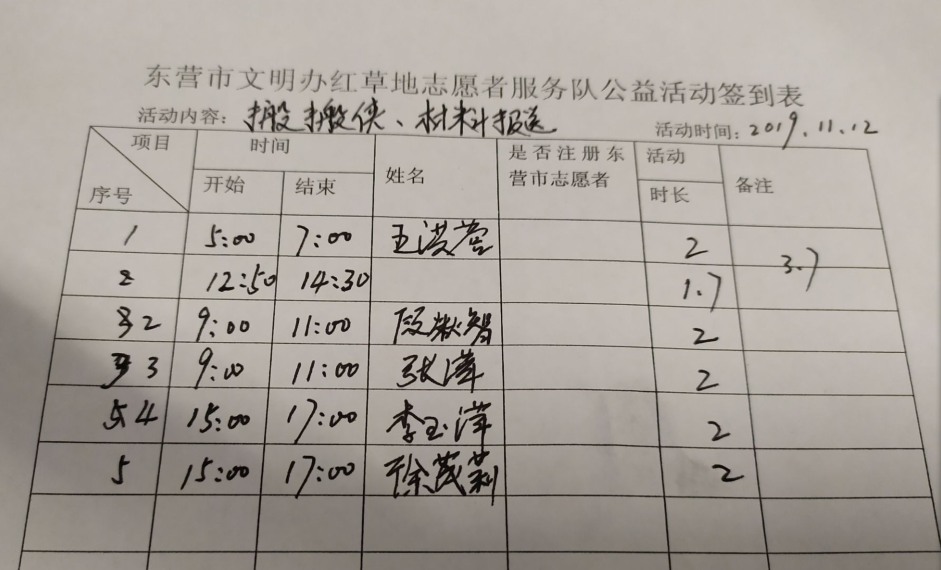 东营市文明办红草地志愿者服务队公益活动签到表
活动内容: 搬搬侠、材料报送 活动时间: 2019.11.12
项目 时间 姓名 是否注册东营市志愿者 活动时长 备注
序号 开始 结束
1 5:00 7:00 王洪营 2 3.7
2 12:50 14:30 1.7
2 9:00 11:00 段献智 2
3 9:00 11:00 张萍 2
4 15:00 17:00 李玉萍 2
5 15:00 17:00 徐茂莉 2